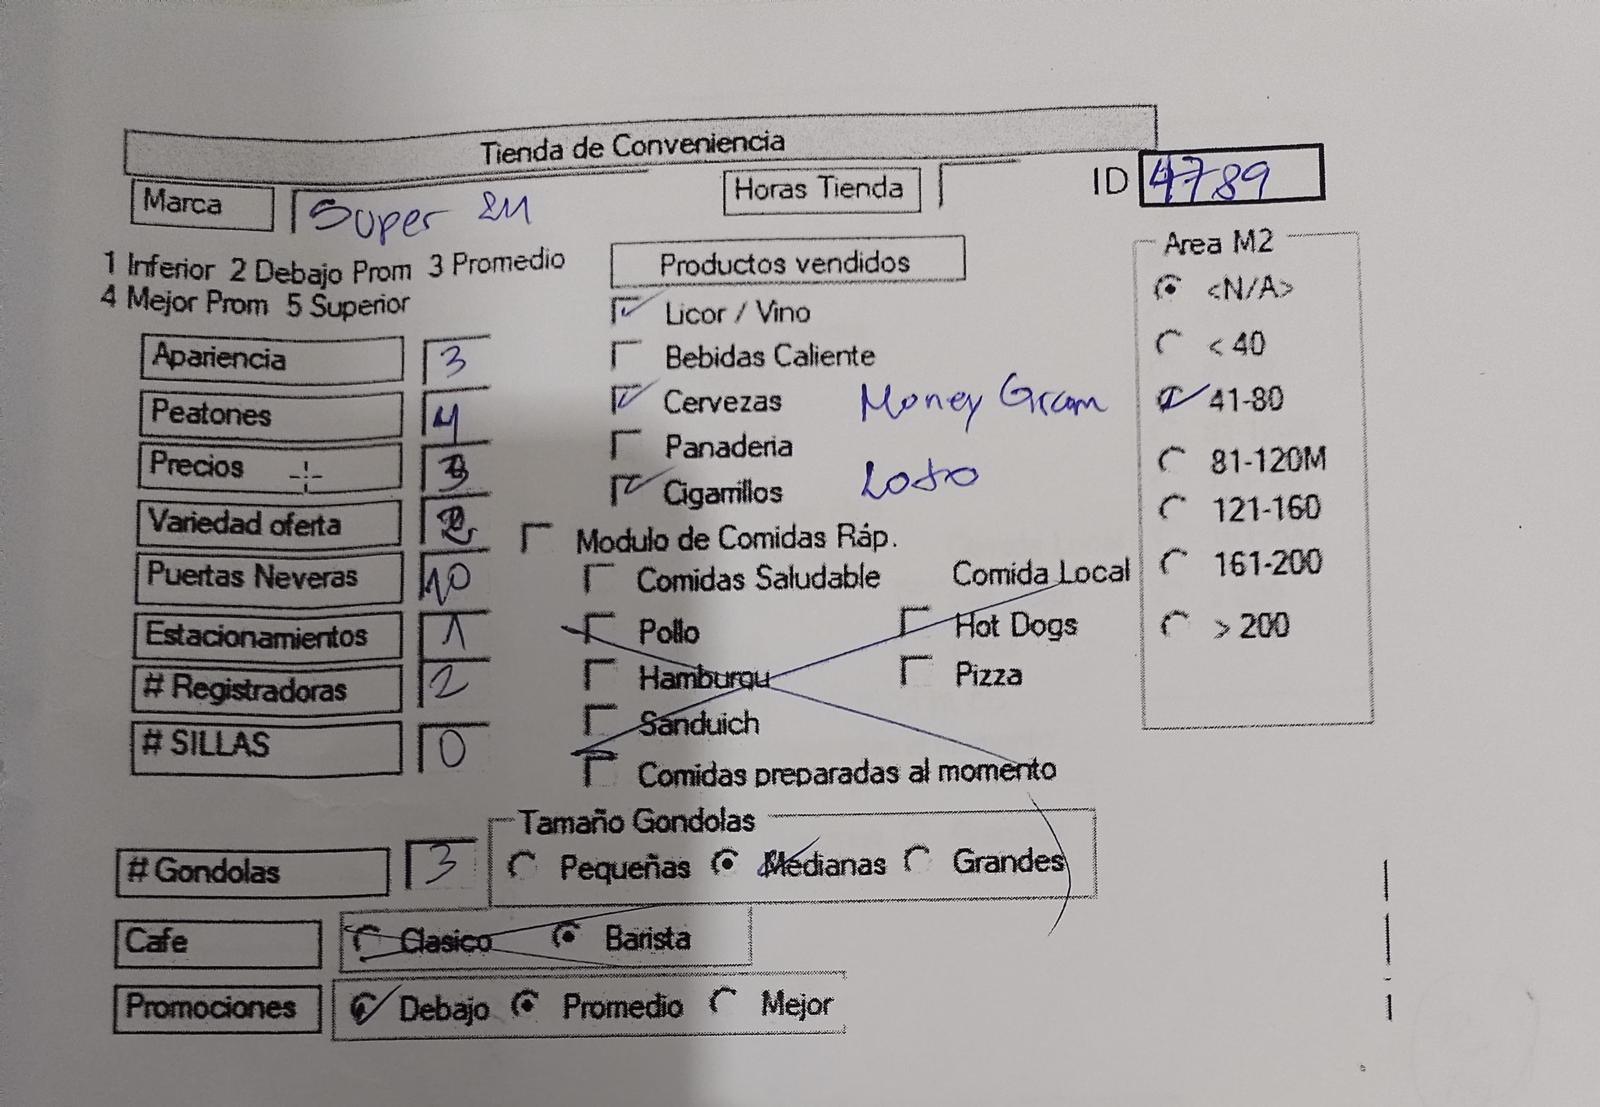 Tienda de Conveniencia
Marca Super 2M Horas Tienda ID 4789
1 Inferior 2 Debajo Prom 3 Promedio
4 Mejor Prom 5 Superior
Productos vendidos
Licor / Vino
Bebidas Caliente
Cervezas Money Gram
Panaderia
Cigarrillos Loto
Apariencia 3
Peatones 4
Precios 3
Variedad oferta 2
Puertas Neveras 10
Estacionamientos 1
# Registradoras 2
# SILLAS 0
Modulo de Comidas Ráp.
Comidas Saludable Comida Local
Pollo Hot Dogs
Hamburgu Pizza
Sanduich
Comidas preparadas al momento
Area M2
<N/A>
< 40
41-80
81-120M
121-160
161-200
> 200
Tamaño Gondolas
# Gondolas 3 Pequeñas Medianas Grandes
Cafe Clasico Barista
Promociones Debajo Promedio Mejor